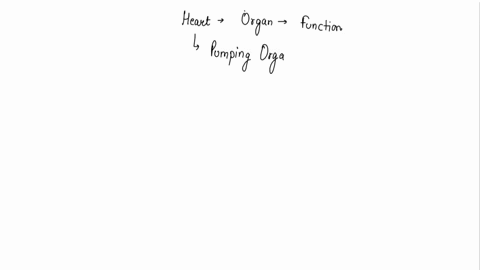 Heart → Organ → function
↳ Pumping Orga